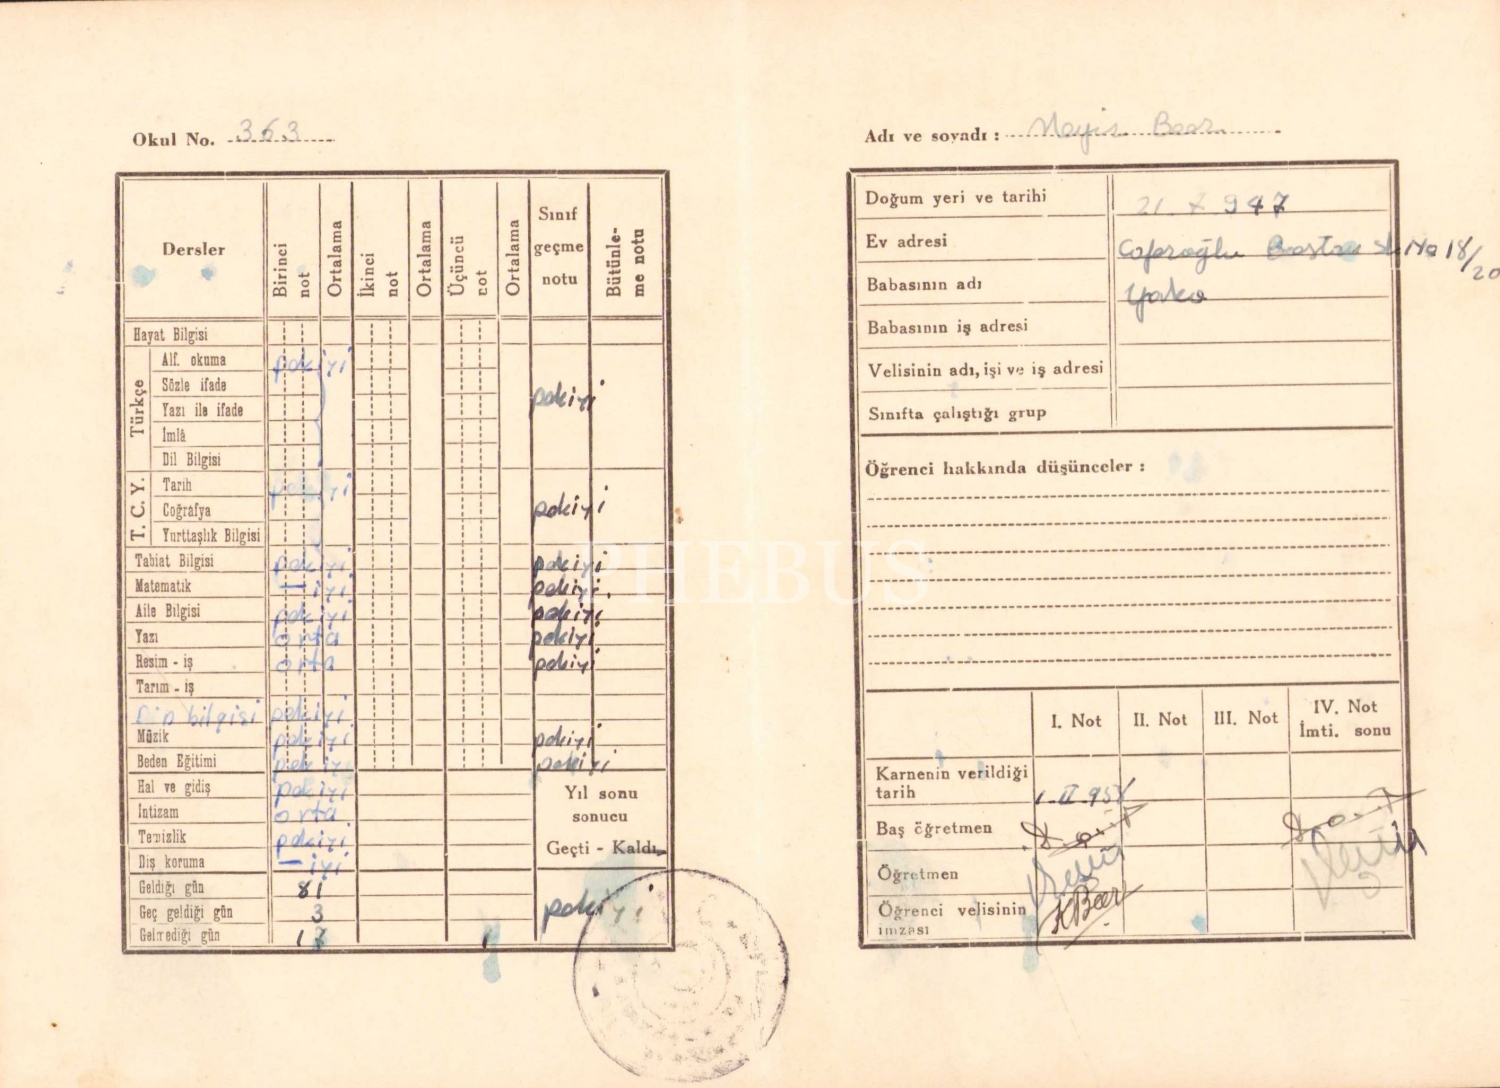 Okul No. 363
Dersler
Birinci not
Ortalama
İkinci not
Ortalama
Üçüncü not
Ortalama
Sınıf geçme notu
Bütünleme notu
Hayat Bilgisi
Türkçe
Alf. okuma pekiyi
Sözle ifade pekiyi
Yazı ile ifade
İmlâ
Dil Bilgisi
T. C. Y.
Tarih pekiyi
Coğrafya pekiyi
Yurttaşlık Bilgisi
Tabiat Bilgisi pekiyi pekiyi
Matematik — iyi pekiyi
Aile Bilgisi pekiyi pekiyi
Yazı orta pekiyi
Resim - iş orta pekiyi
Tarım - iş
Din bilgisi pekiyi
Müzik pekiyi pekiyi
Beden Eğitimi pekiyi pekiyi
Hal ve gidiş pekiyi
İntizam orta
Temizlik pekiyi
Diş koruma — iyi
Geldiği gün 81
Geç geldiği gün 3
Gelmediği gün 17
Yıl sonu
sonucu
Geçti - Kaldı
pekiyi
Adı ve soyadı :
Doğum yeri ve tarihi 21.7.947
Ev adresi No 18/20
Babasının adı Yako
Babasının iş adresi
Velisinin adı, işi ve iş adresi
Sınıfta çalıştığı grup
Öğrenci hakkında düşünceler :
I. Not II. Not III. Not IV. Not
İmti. sonu
Karnenin verildiği
tarih 1.II.958
Baş öğretmen
Öğretmen
Öğrenci velisinin
imzası
PHEBUS